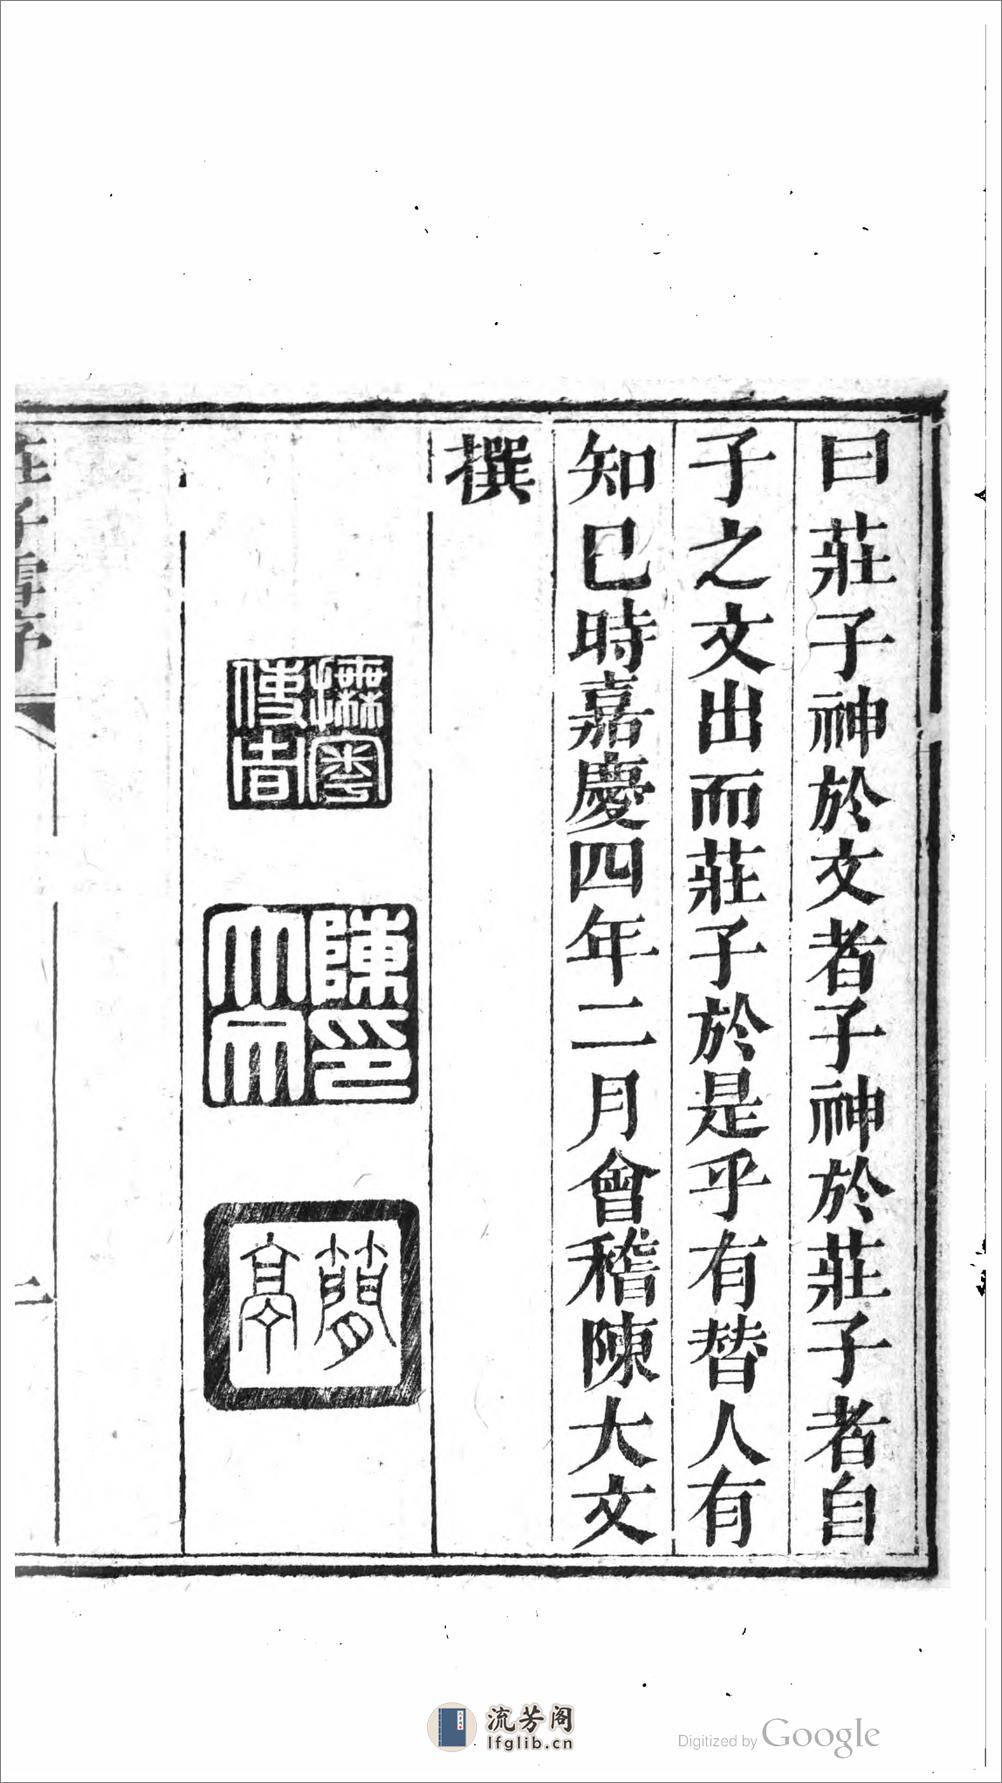 曰莊子神於文者子神於莊子者自
子之文出而莊子於是乎有替人有
知已時嘉慶四年二月會稽陳大文
撰
撫粵
使者
陳印
大文
簡
亭
莊子雪序
二
流芳阁
lfglib.cn
Digitized by Google